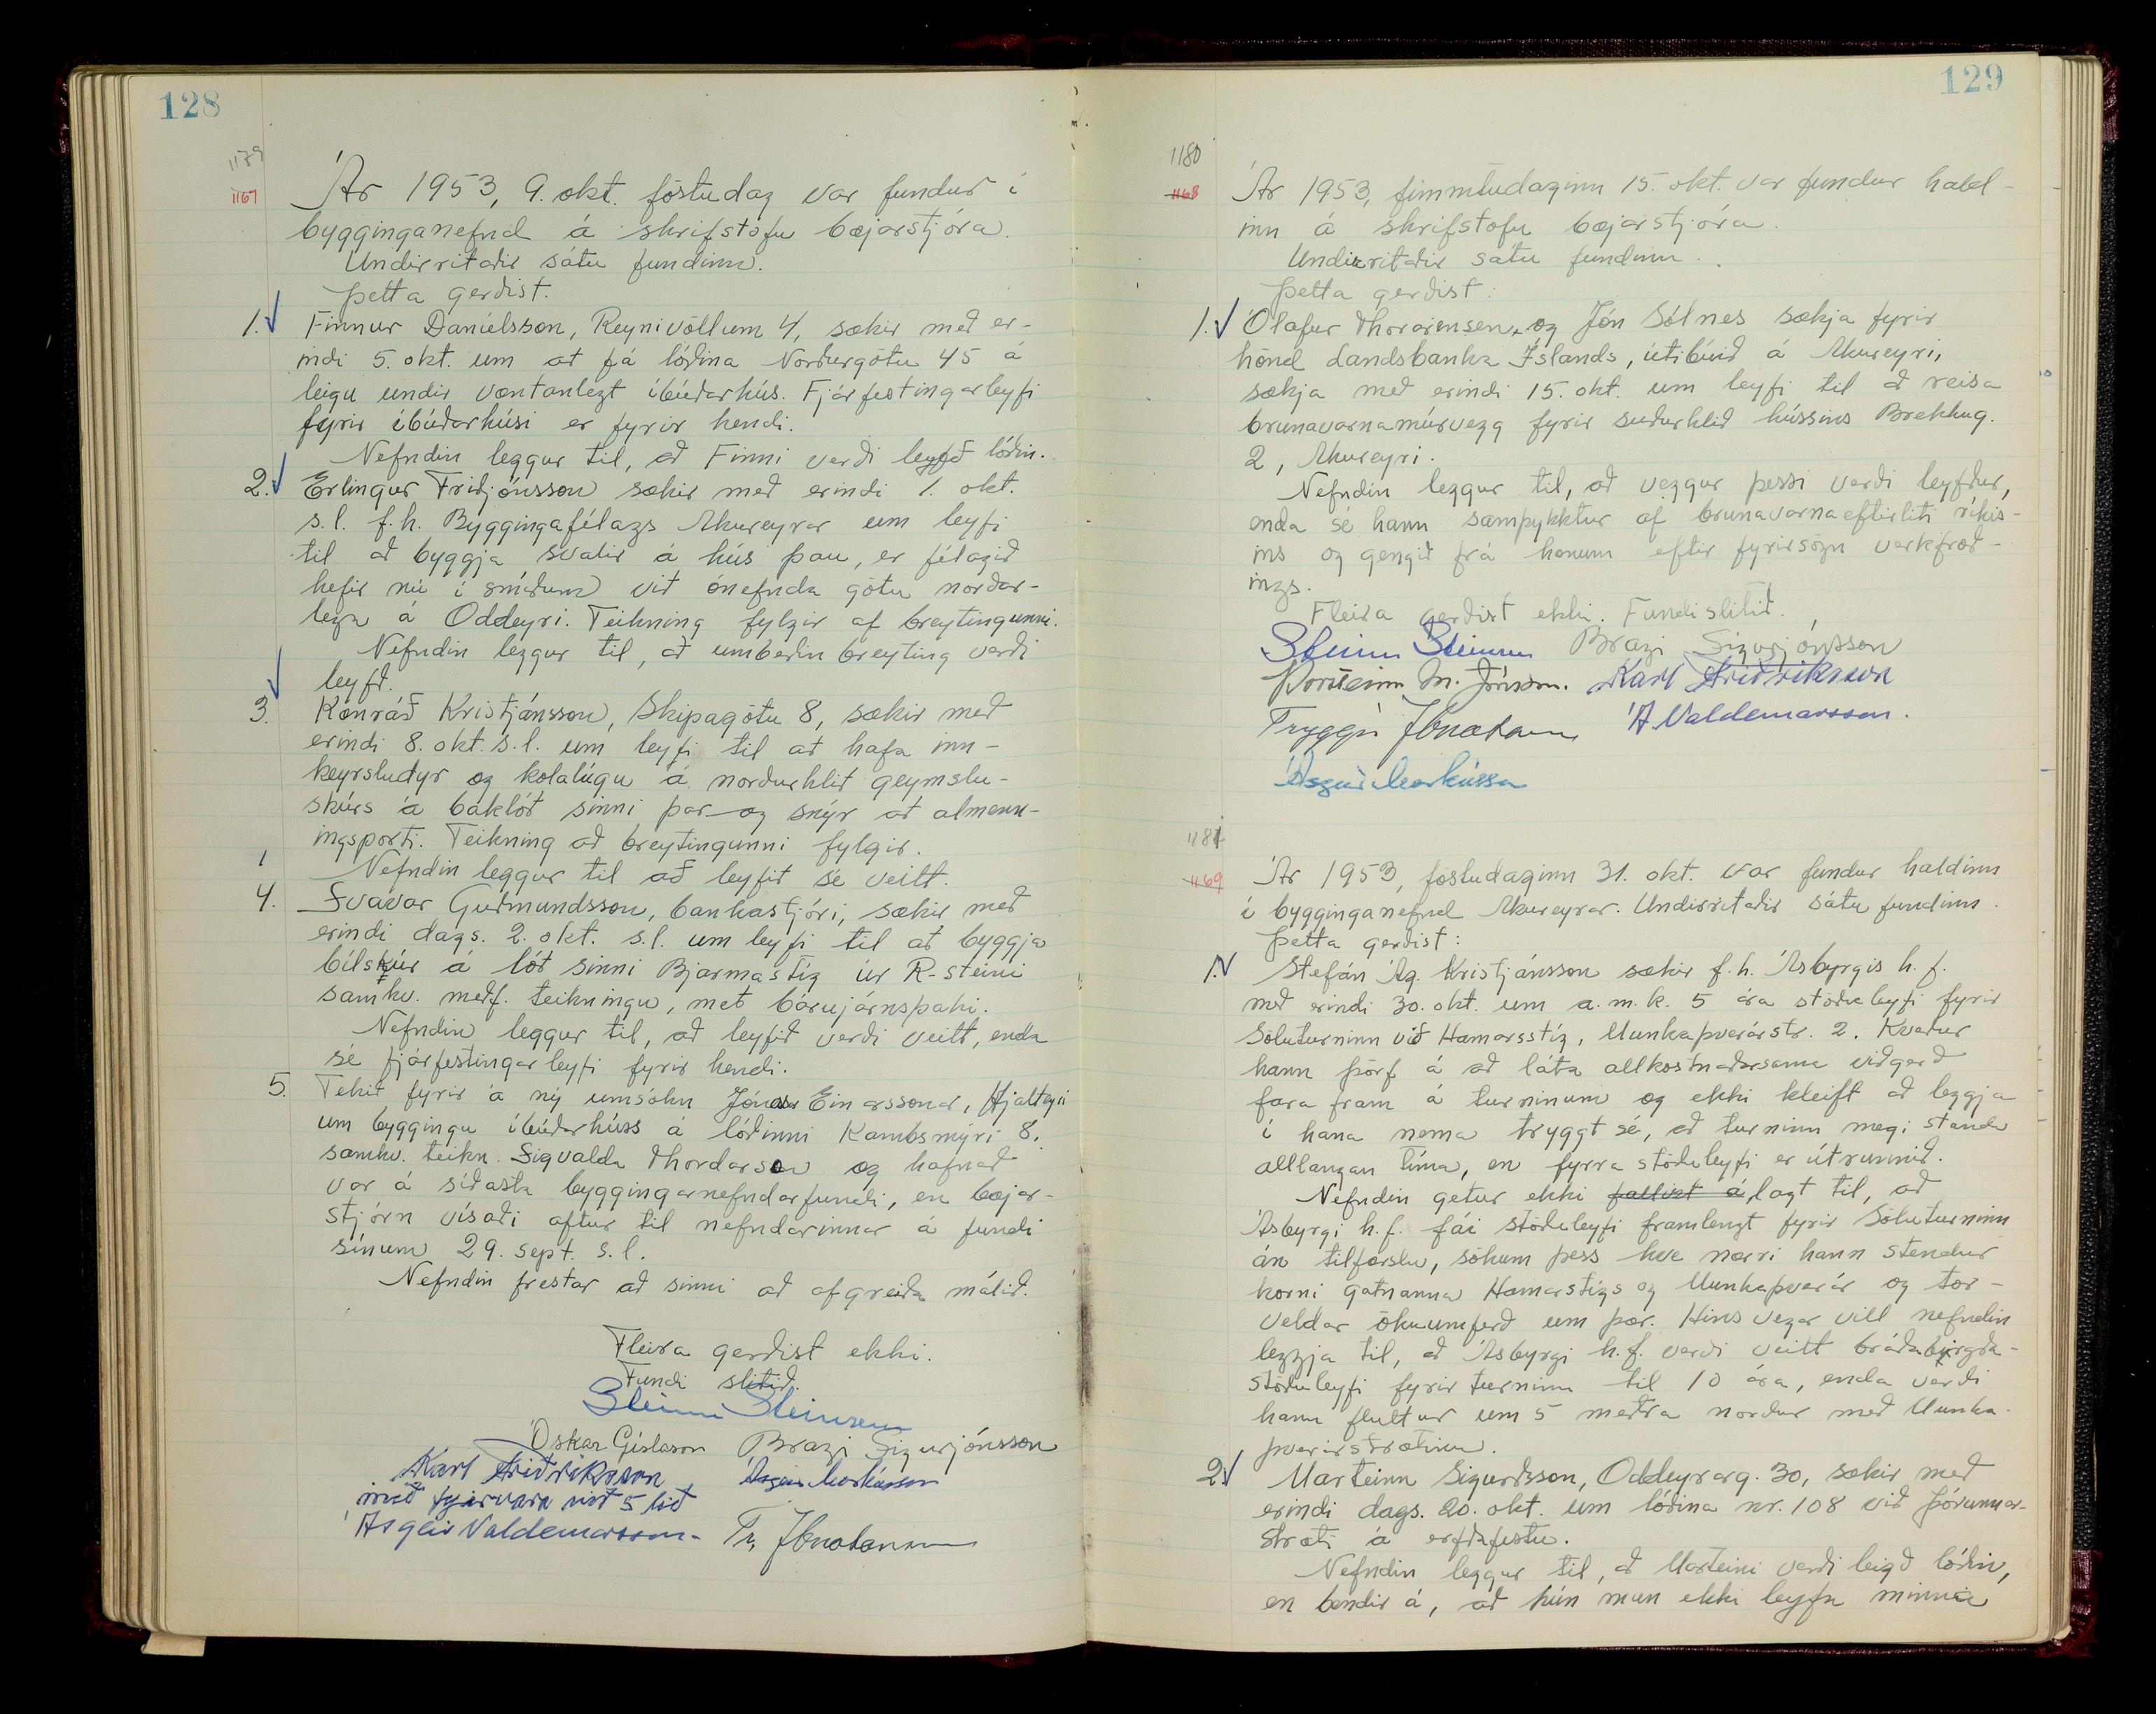 128
1179
1167
Ár 1953, 9. okt. föstudag var fundur í
bygginganefnd á skrifstofu bæjarstjóra.
Undirritaðir sátu fundinn.
Þetta gerðist.
1. Finnur Daníelsson, Reynivöllum 4, sækir með er-
indi 5. okt. um at fá lóðina Norðurgötu 45 á
leigu undir væntanlegt íbúðarhús. Fjárfestingarleyfi
fyrir íbúðarhúsi er fyrir hendi.
Nefndin leggur til, að Finni verði leygð lóðin.
2. Erlingur Friðjónsson sækir með erindi 1. okt.
s.l. f.h. Byggingafélags Akureyrar um leyfi
til að byggja svalir á hús þau, er félagið
hefir nú í smíðum við ónefnda götu norðar-
lega á Oddeyri. Teikning fylgir af breytingunni.
Nefndin leggur til, að umbeðin breyting verði
leyfð.
3. Konráð Kristjánsson, Skipagötu 8, sækir með
erindi 8. okt. s.l. um leyfi til at hafa inn-
keyrsludyr og kolalúgu á norðurhlið geymslu-
skúrs á baklót sinni þar og snýr at almenn-
ingsporti. Teikning að breytingunni fylgir.
Nefndin leggur til að leyfit sé veitt.
4. Svavar Guðmundsson, bankastjóri, sækir með
erindi dags. 2. okt. s.l. um leyfi til at byggja
bílskúr á lót sinni Bjarmastíg úr R-steini
samkv. meðf. teikningu, met bárujárnsþaki.
Nefndin leggur til, að leyfið verði veitt, enda
sé fjárfestingarleyfi fyrir hendi.
5. Tekit fyrir á ný umsókn Jónasar Einarssonar, Hjalteyri
um byggingu íbúðarhúss á lóðinni Kambsmýri 8.
samkv. teikn. Sigvalda Thordarson og hafnað
var á síðasta byggingarnefndarfundi, en bæjar-
stjórn vísaði aftur til nefndarinnar á fundi
sínum 29. sept. s.l.
Nefndin frestar að sinni að afgreiða málið.
Fleira gerðist ekki.
Fundi slitið.
Steinn Steinsen
Óskar Gíslason Bragi Sigurjónsson
Karl Friðriksson Ásgeir Markússon
með fyrirvara við 5 lið
Ásgeir Valdemarsson Tr. Jónatansson
129
1180
1168
Ár 1953, fimmtudaginn 15. okt. var fundur hald-
inn á skrifstofu bæjarstjóra.
Undirritaðir sátu fundinn.
Þetta gerðist:
1. Ólafur Thorarensen og Jón Sólnes sækja fyrir
hönd Landsbanka Íslands, útibúið á Akureyri,
sækja með erindi 15. okt. um leyfi til að reisa
brunavarnamúrvegg fyrir suðurhlið hússins Brekkug.
2, Akureyri.
Nefndin leggur til, að veggur þessi verði leyfður,
enda sé hann samþykktur af brunavarnaeftirliti ríkis-
ins og gengið frá honum eftir fyrirsögn verkfræð-
ings.
Fleira gerðist ekki. Fundi slitið.
Steinn Steinsen Bragi Sigurjónsson
Þorsteinn M. Jónsson. Karl Friðriksson
Tryggvi Jónatansson Á Valdemarsson.
Ásgeir Markússon
1181
1169
Ár 1953, föstudaginn 31. okt. var fundur haldinn
í bygginganefnd Akureyrar. Undirritaðir sátu fundinn.
Þetta gerðist:
1. Stefán Ág. Kristjánsson sækir f.h. Ásbyrgis h.f.
með erindi 30. okt. um a.m.k. 5 ára stöðuleyfi fyrir
Söluturninn við Hamarsstíg, Munkaþverárstr. 2. Kveður
hann þörf á að láta allkostnaðarsama viðgerð
fara fram á turninum og ekki kleift að leggja
í hana nema tryggt sé, að turninn megi standa
alllangan tíma, en fyrra stöðuleyfi er útrunnið.
Nefndin getur ekki fallist á lagt til, að
Ásbyrgi h.f. fái stöðuleyfi framlengt fyrir Söluturninn
án tilfærslu, sökum þess hve nærri hann stendur
horni gatnanna Hamarstígs og Munkaþverár og tor-
veldar ökuumferð um þær. Hins vegar vill nefndin
leggja til, að Ásbyrgi h.f. verði veitt bráðabirgða-
stöðuleyfi fyrir turninn til 10 ára, enda verði
hann fluttur um 5 metra norður með Munka-
þverárstrætinu.
2. Marteinn Sigurðsson, Oddeyrarg. 30, sækir með
erindi dags. 20. okt. um lóðina nr. 108 við Þórunnar-
stræti á erfðafestu.
Nefndin leggur til, að Marteini verði leigð lóðin,
en bendir á, að hún mun ekki leyfa minnia